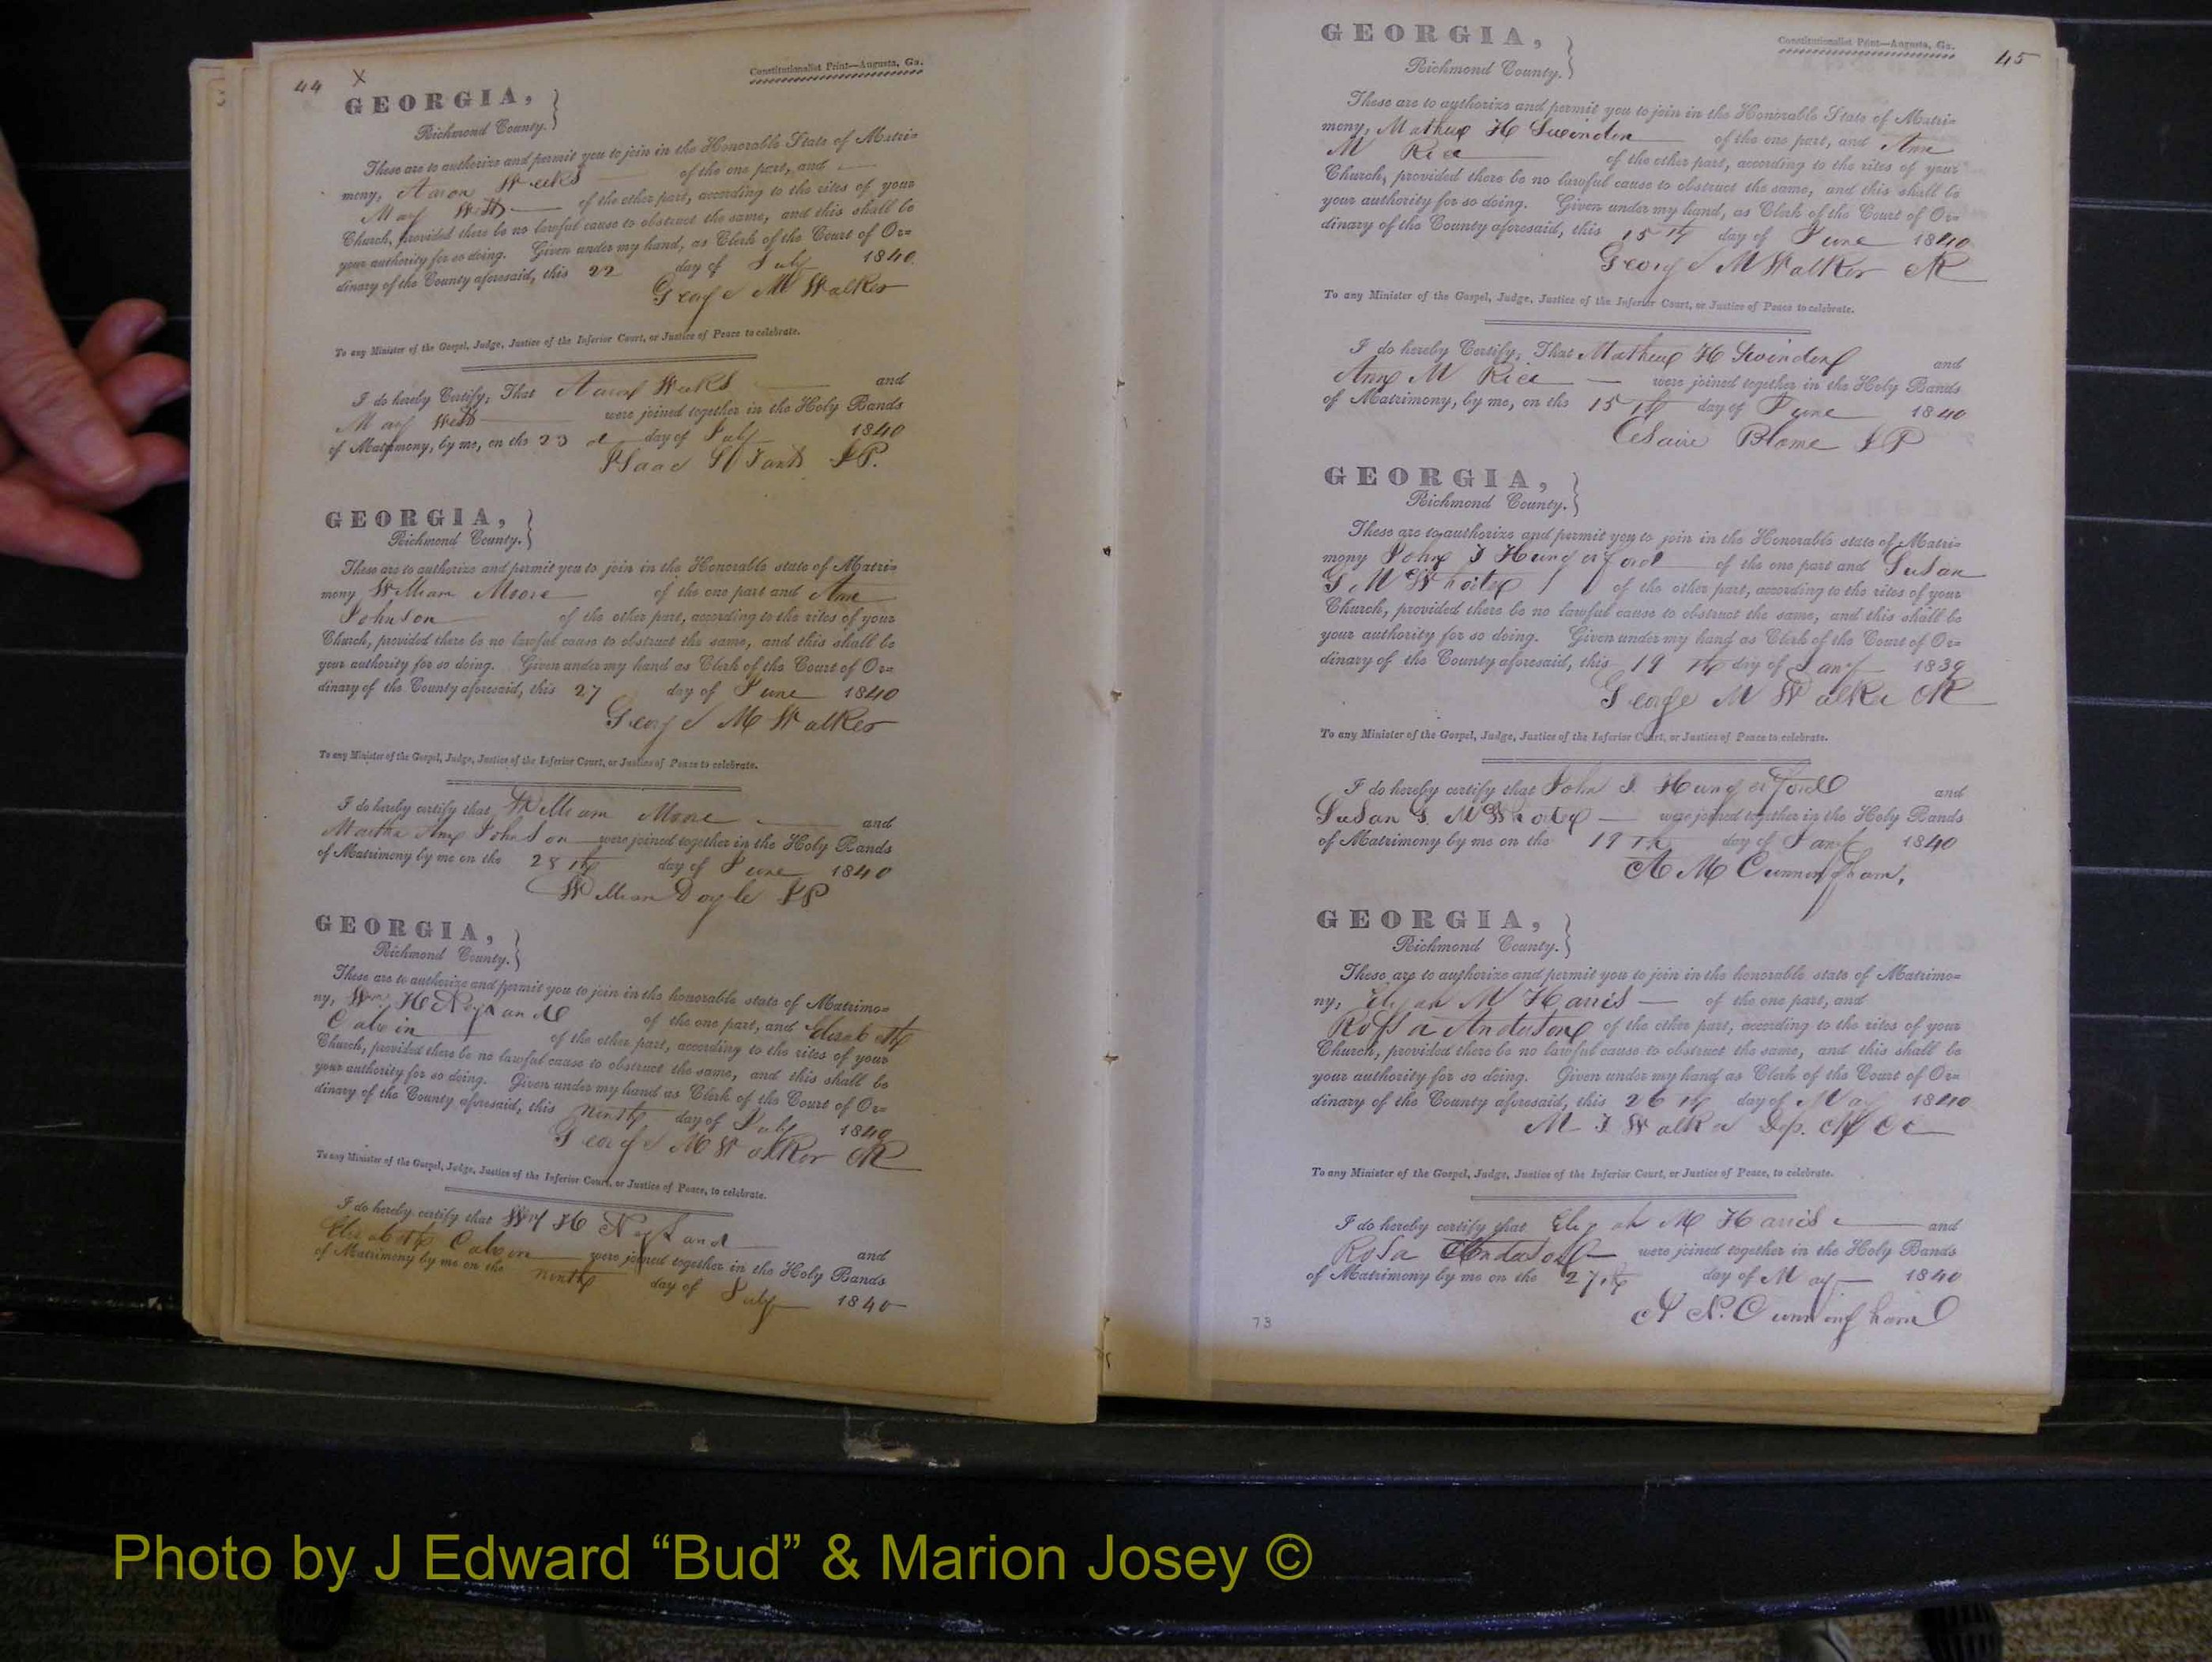 44 X
Constitutionalist Print—Augusta, Ga.
GEORGIA,
Richmond County.
These are to authorize and permit you to join in the Honorable State of Matri=
mony, Aaron Weeks of the one part, and
Mary West of the other part, according to the rites of your
Church, provided there be no lawful cause to obstruct the same, and this shall be
your authority for so doing. Given under my hand, as Clerk of the Court of Or=
dinary of the County aforesaid, this 22 day of July 1840.
George M Walker
To any Minister of the Gospel, Judge, Justice of the Inferior Court, or Justice of Peace to celebrate.
I do hereby Certify, That Aaron Weeks and
Mary West were joined together in the Holy Bands
of Matrimony, by me, on the 23 d day of July 1840
Isaac JP.
GEORGIA,
Richmond County.
These are to authorize and permit you to join in the Honorable state of Matri=
mony William Moore of the one part and Ann
Johnson of the other part, according to the rites of your
Church, provided there be no lawful cause to obstruct the same, and this shall be
your authority for so doing. Given under my hand as Clerk of the Court of Or=
dinary of the County aforesaid, this 27 day of June 1840
George M Walker
To any Minister of the Gospel, Judge, Justice of the Inferior Court, or Justice of Peace to celebrate.
I do hereby certify that William Moore and
Martha Ann Johnson were joined together in the Holy Bands
of Matrimony by me on the 28th day of June 1840
William Doyle JP
GEORGIA,
Richmond County.
These are to authorize and permit you to join in the honorable state of Matrimo=
ny, Wm H of the one part, and Elizabeth
Calvin of the other part, according to the rites of your
Church, provided there be no lawful cause to obstruct the same, and this shall be
your authority for so doing. Given under my hand as Clerk of the Court of Or=
dinary of the County aforesaid, this ninth day of July 1840
George M Walker Clk
To any Minister of the Gospel, Judge, Justice of the Inferior Court, or Justice of Peace, to celebrate.
I do hereby certify that Wm H and
Elizabeth Calvin were joined together in the Holy Bands
of Matrimony by me on the ninth day of July 1840
Constitutionalist Print—Augusta, Ga. 45
GEORGIA,
Richmond County.
These are to authorize and permit you to join in the Honorable State of Matri=
mony, Mathew H Swinden of the one part, and Ann
M Rice of the other part, according to the rites of your
Church, provided there be no lawful cause to obstruct the same, and this shall be
your authority for so doing. Given under my hand, as Clerk of the Court of Or=
dinary of the County aforesaid, this 15th day of June 1840
George M Walker Clk
To any Minister of the Gospel, Judge, Justice of the Inferior Court, or Justice of Peace to celebrate.
I do hereby Certify, That Mathew H Swinden and
Ann M Rice were joined together in the Holy Bands
of Matrimony, by me, on the 15th day of June 1840
Blome JP
GEORGIA,
Richmond County.
These are to authorize and permit you to join in the Honorable state of Matri=
mony John J Hungerford of the one part and Susan
G McWhorter of the other part, according to the rites of your
Church, provided there be no lawful cause to obstruct the same, and this shall be
your authority for so doing. Given under my hand as Clerk of the Court of Or=
dinary of the County aforesaid, this 19th day of Jany 1839
George M Walker Clk
To any Minister of the Gospel, Judge, Justice of the Inferior Court, or Justice of Peace to celebrate.
I do hereby certify that John J. Hungerford and
Susan G. McWhorter were joined together in the Holy Bands
of Matrimony by me on the 19th day of Jany 1840
A M Cunningham,
GEORGIA,
Richmond County.
These are to authorize and permit you to join in the honorable state of Matrimo=
ny, Elijah M Harris of the one part, and
Rossa Anderson of the other part, according to the rites of your
Church, provided there be no lawful cause to obstruct the same, and this shall be
your authority for so doing. Given under my hand as Clerk of the Court of Or=
dinary of the County aforesaid, this 26th day of May 1840
M J Walker Dep.
To any Minister of the Gospel, Judge, Justice of the Inferior Court, or Justice of Peace, to celebrate.
I do hereby certify that Elijah M Harris and
Rosa Anderson were joined together in the Holy Bands
of Matrimony by me on the 27th day of May 1840
A N. Cunningham
73
Photo by J Edward “Bud” & Marion Josey ©